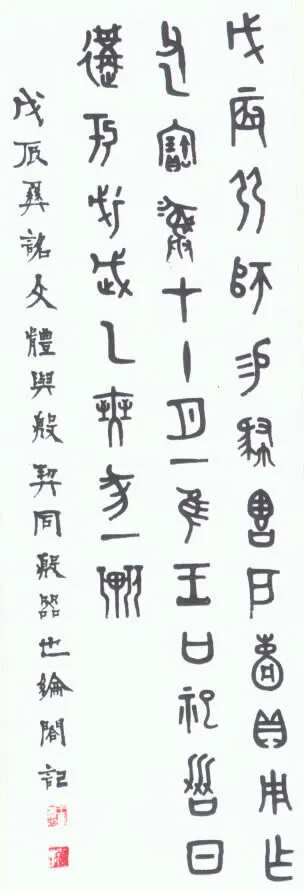 戊辰弜師易肆戶貝用乍父
乙寶彝才十月一隹王廿祀劦日
遘于妣戊武乙奭豕一旅
戊辰彝銘文體與殷契同殷器也綸閣記